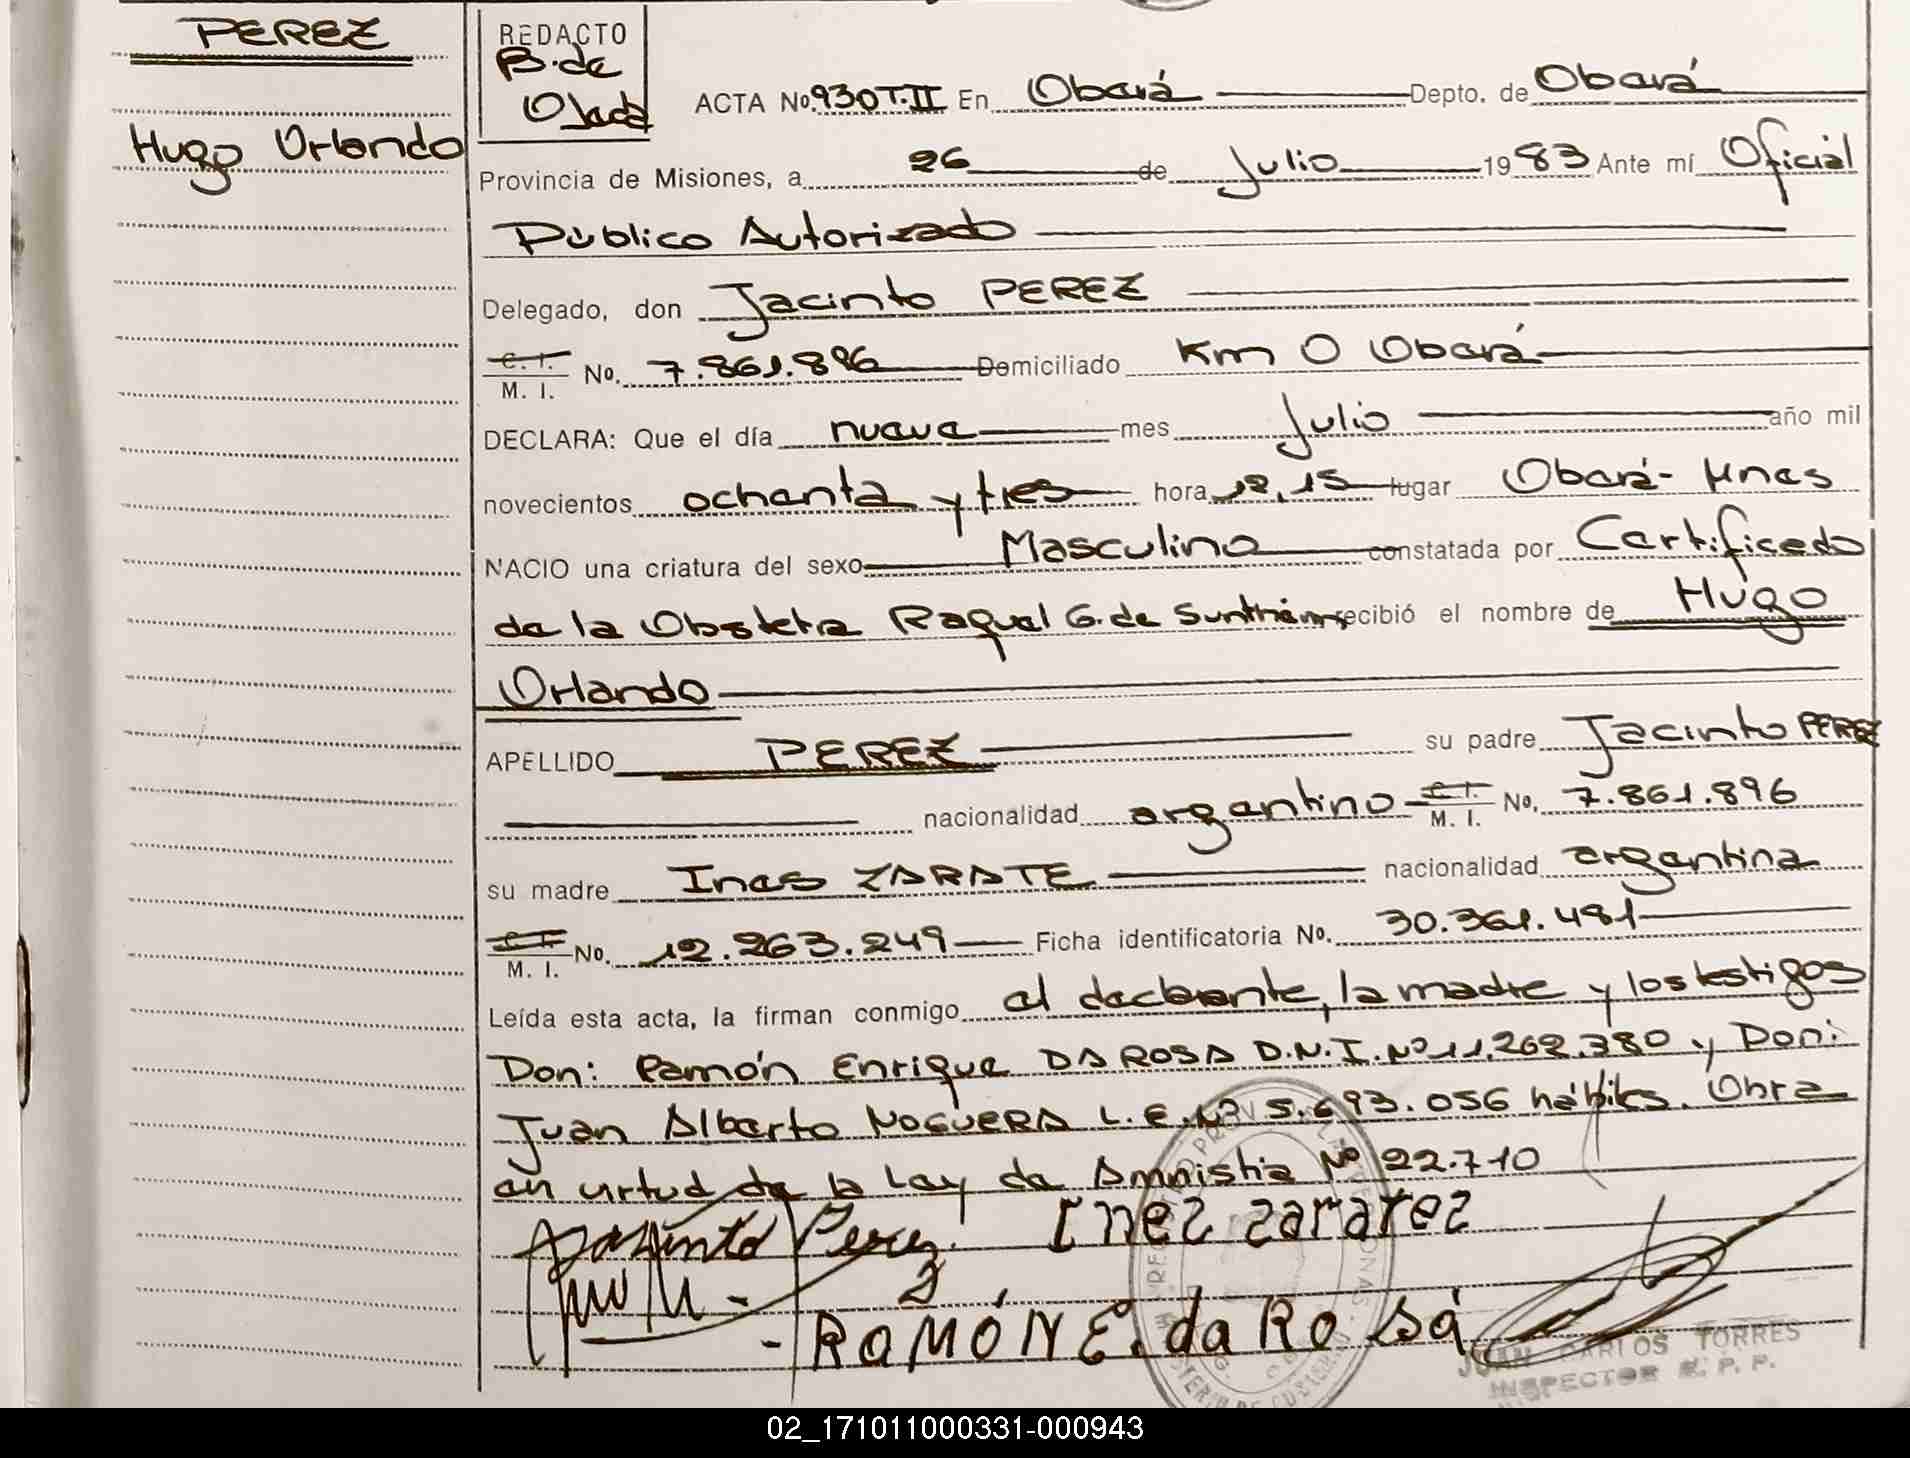 PEREZ
Hugo Orlando
REDACTO
B. de
Ojeda
ACTA No. 930 T. II En Oberá Depto. de Oberá
Provincia de Misiones, a 26 de Julio 1983 Ante mí Oficial
Público Autorizado
Delegado, don Jacinto PEREZ
C. I. / M. I. No. 7.861.896 Domiciliado Km 0 Oberá
DECLARA: Que el día nueve mes Julio año mil
novecientos ochenta y tres hora 12,15 lugar Oberá- Mnes
NACIO una criatura del sexo Masculino constatada por Certificado
de la Obstetra Raquel G. de recibió el nombre de Hugo
Orlando
APELLIDO PEREZ su padre Jacinto PEREZ
nacionalidad argentino C. I. / M. I. No. 7.861.896
su madre Ines ZARATE nacionalidad argentina
C. I. / M. I. No. 12.263.249 Ficha identificatoria No. 30.361.481
Leída esta acta, la firman conmigo el declarante, la madre y los testigos
Don: Ramón Enrique DA ROSA D.N.I. Nº 11.262.380 y Don:
Juan Alberto NOGUERA L.E. Nº 5.693.056 hábiles. Obra
en virtud de la Ley de Amnistia Nº 22.710
Jasinto Perez. Inez zaratez
- RAMÓN E. da Ro sa
JUAN CARLOS TORRES
INSPECTOR R. P. P.
02_171011000331-000943